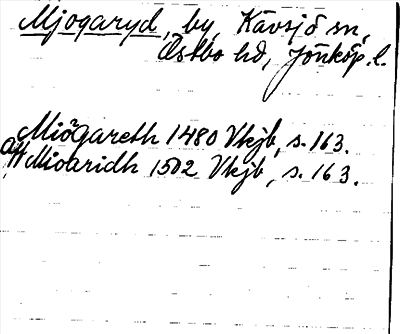 Mjogaryd, by, Kävsjö sn,
Östbo hd, Jönköp. l.
Miögareth 1480 Vkjb, s. 163.
att Mioaridh 1502 Vkjb, s. 163.